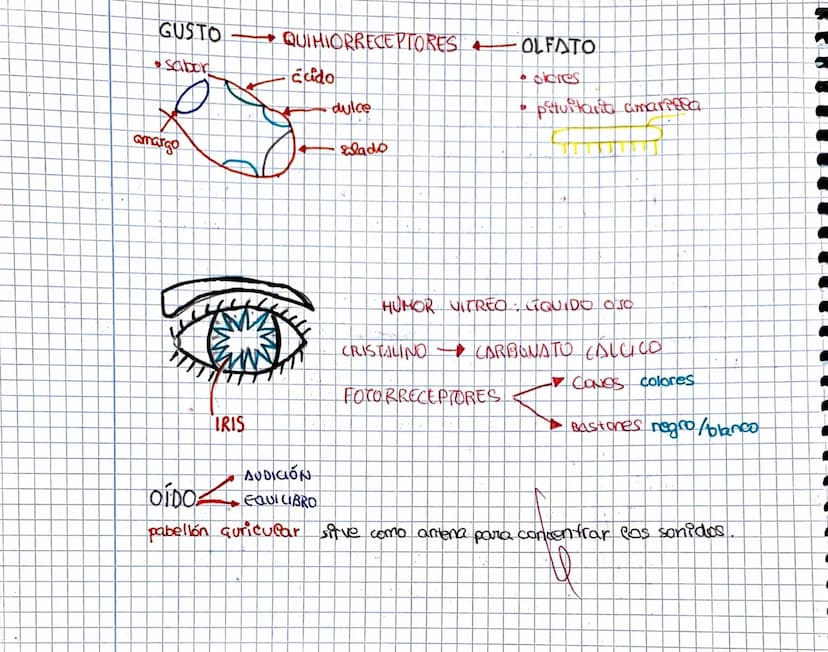 GUSTO → QUIMIORRECEPTORES ← OLFATO
• sabor
ácido
• olores
dulce
• pituitaria amarilla
amargo
salado
HUMOR VITREO: LÍQUIDO OJO
CRISTALINO → CARBONATO CÁLCICO
FOTORRECEPTORES
Conos colores
Bastones negro/blanco
IRIS
OÍDO
AUDICIÓN
EQUILIBRO
pabellón auricular sirve como antena para concentrar los sonidos.